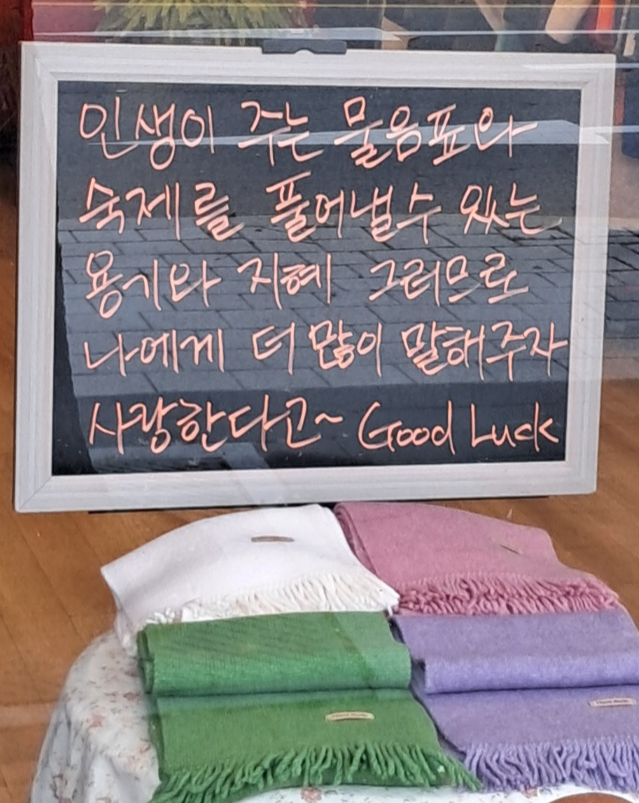 인생이 주는 물음표와
숙제를 풀어낼수 있는
용기와 지혜 그러므로
나에게 더 많이 말해주자
사랑한다고~ Good Luck